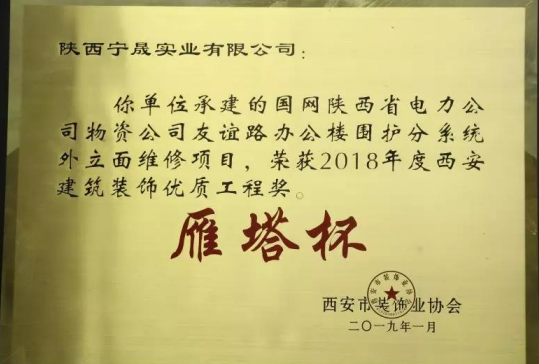 陕西宁晟实业有限公司：
你单位承建的国网陕西省电力公
司物资公司友谊路办公楼围护分系统
外立面维修项目，荣获2018年度西安
建筑装饰优质工程奖。
雁塔杯
西安市装饰业协会
西安市装饰业协会
二〇一九年一月